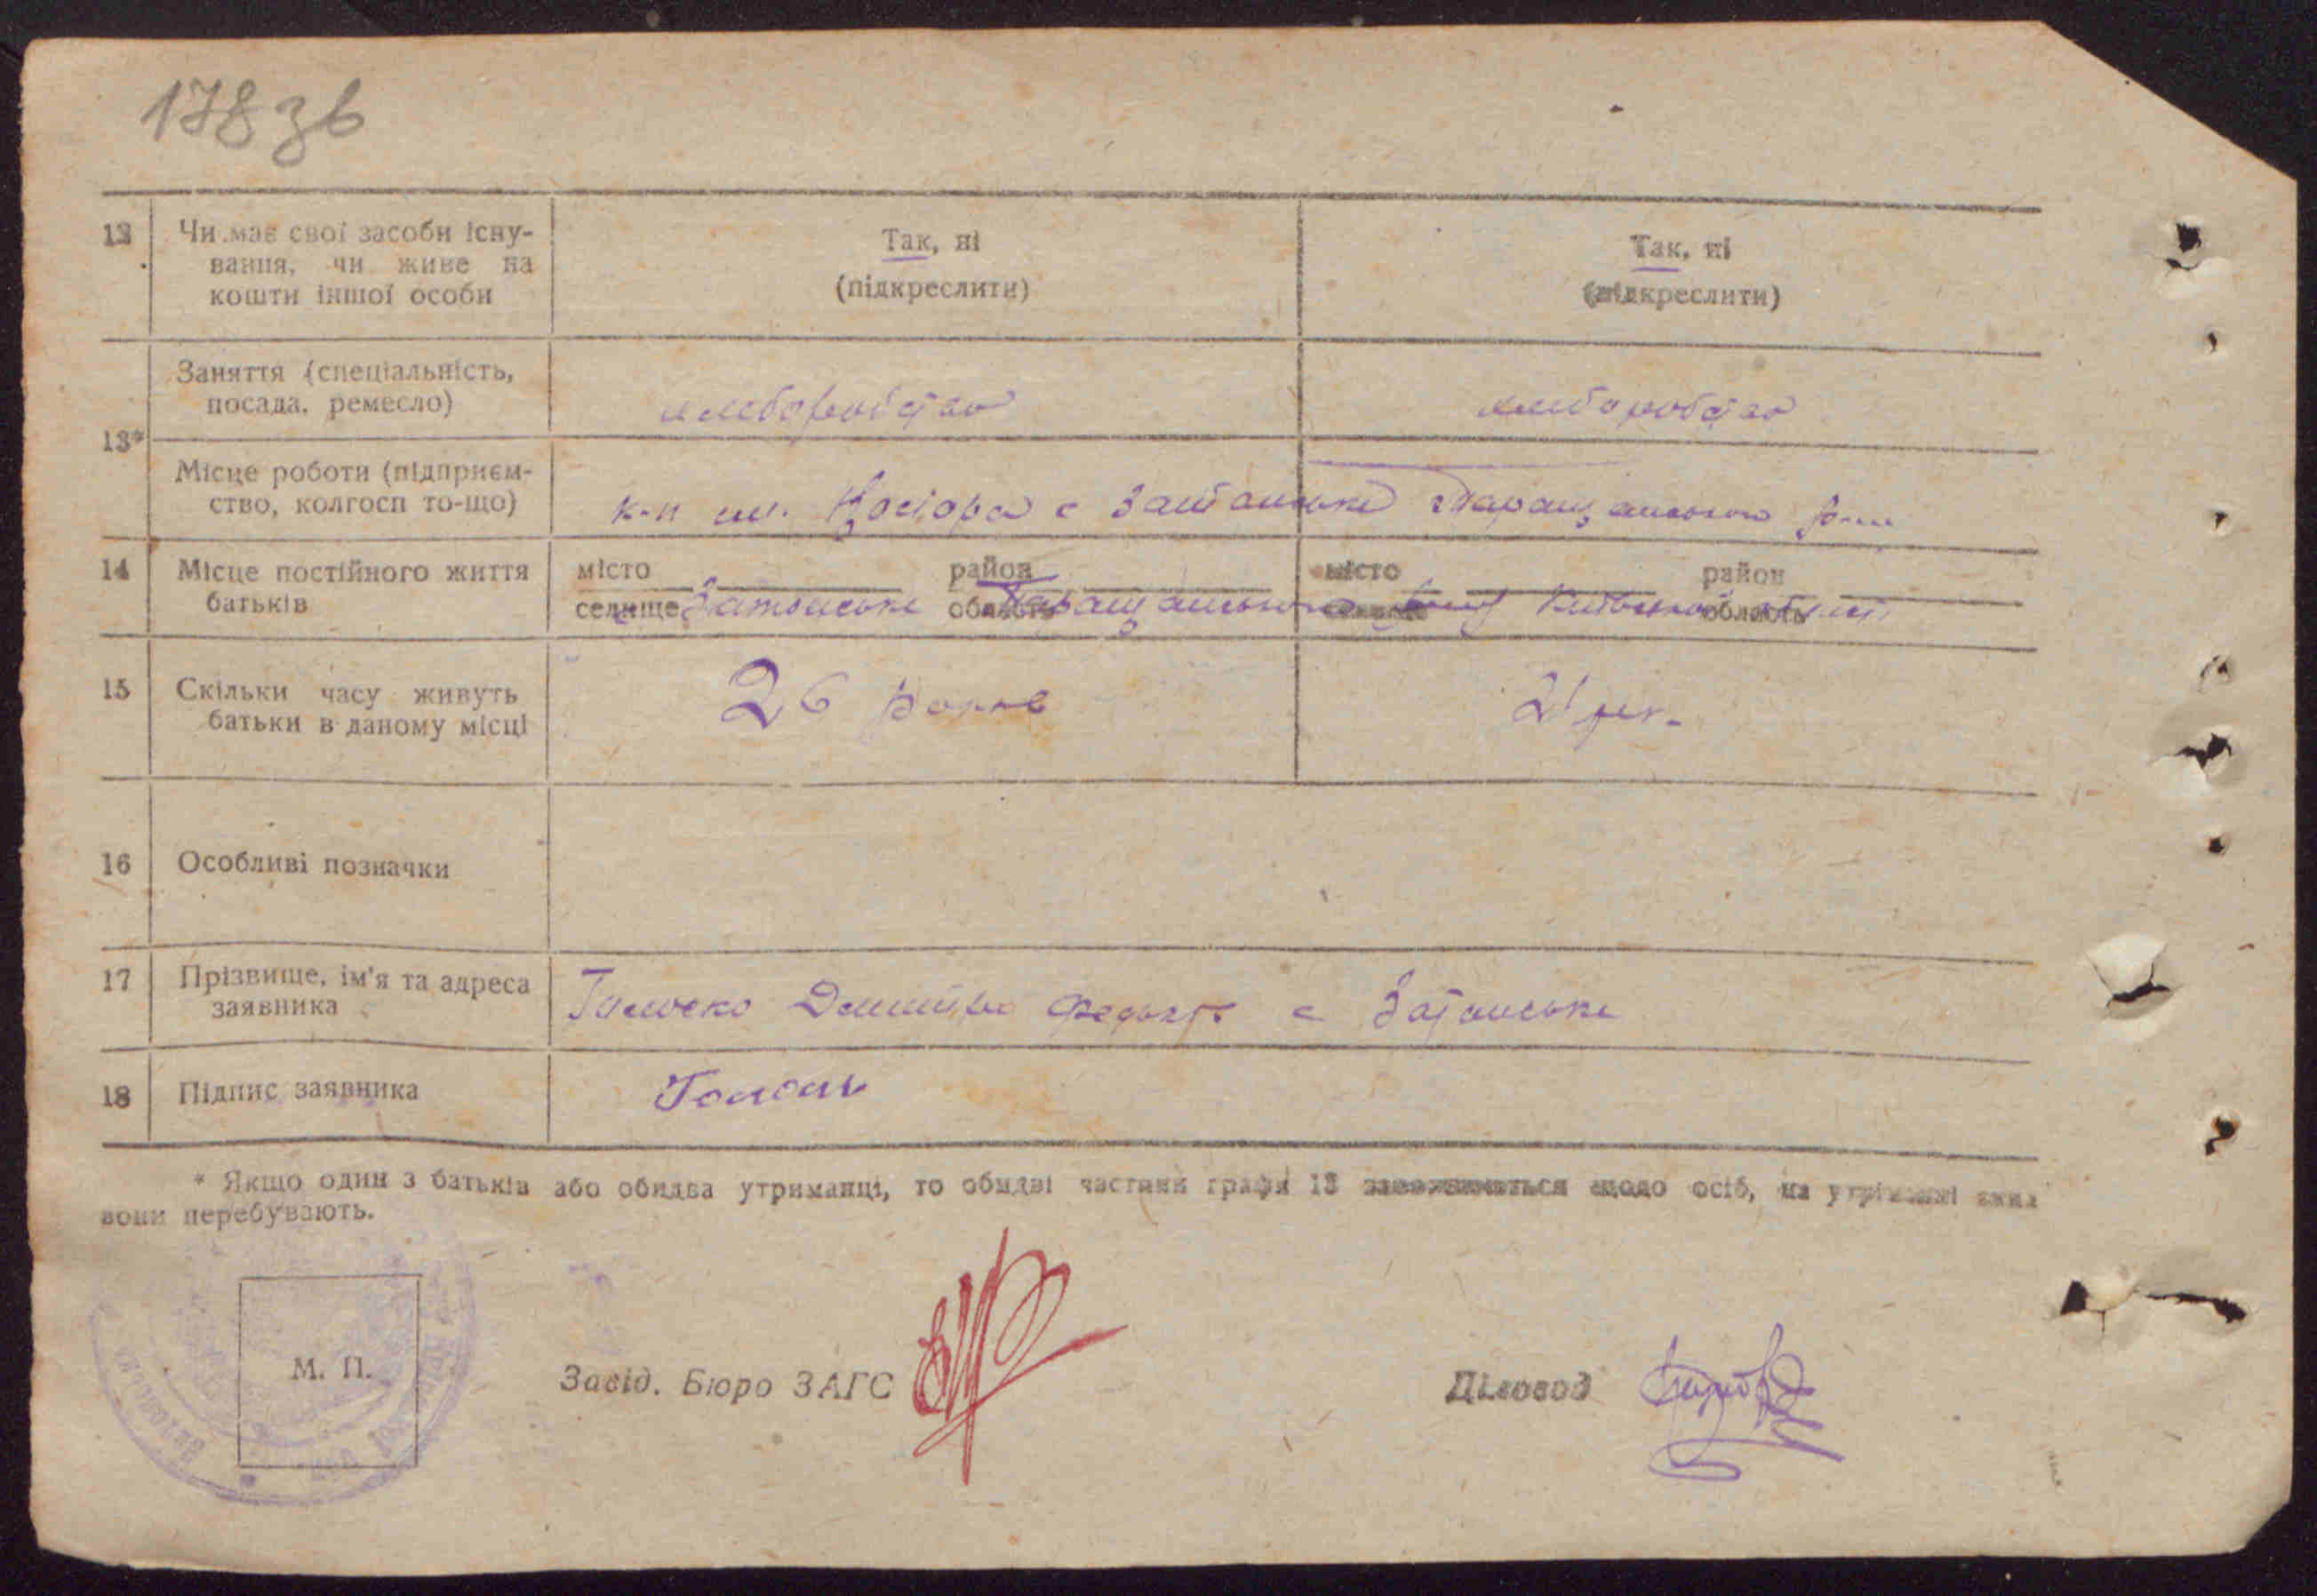 178 зв
12 Чи має свої засоби існу-
вання, чи живе на
кошти іншої особи
Так, ні
(підкреслити)
Так, ні
(підкреслити)
13*
Заняття (спеціальність,
посада, ремесло)
хліборобство
хліборобство
Місце роботи (підприєм-
ство, колгосп то-що)
к-п ім. Косіора с
Таращанського р-ну
14 Місце постійного життя
батьків
місто
селище
район
область
місто
район
область
Таращанського Київської
15 Скільки часу живуть
батьки в даному місці
26 років
21 рік.
16 Особливі позначки
17 Прізвище, ім'я та адреса
заявника
с
18 Підпис заявника
* Якщо один з батьків або обидва утриманці, то обидві частини графи 13 заповнюються щодо осіб, на утриманні яких
вони перебувають.
М. П.
Завід. Бюро ЗАГС
Діловод